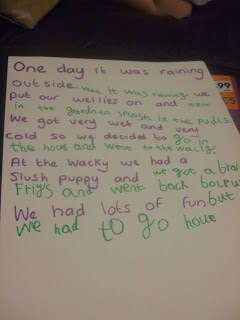 One day it was raining
outside was it was raining we
put our wellies on and went
in the garden splash in the pudls
We got very wet and very
cold so we decided to go in
the hous and went to the wacky.
At the Wacky we had a
Slush puppy and we got a
Friys and went back
We had lots of fun but
We had to go houe
99